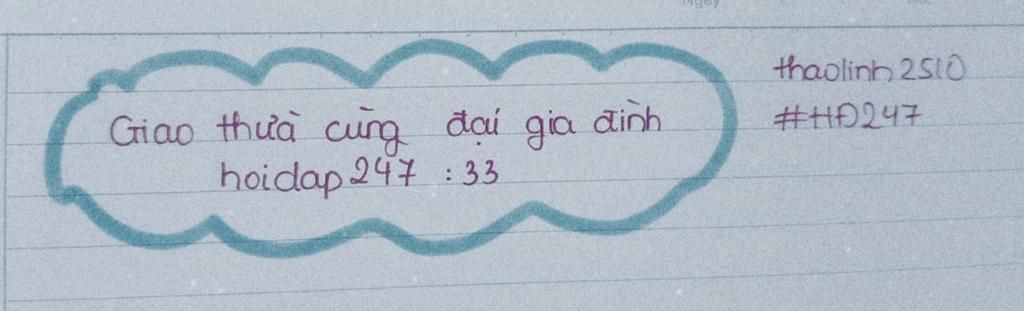 Giao thừa cùng đại gia đình
hoidap247 :33
thaolinh2510
#HĐ247